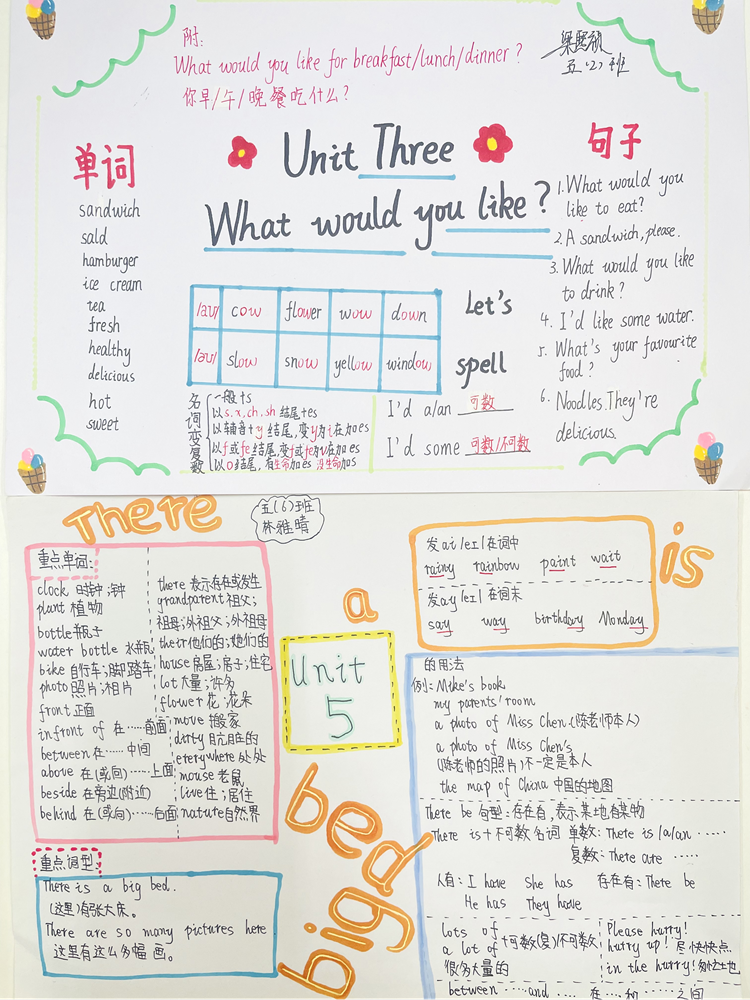 附:
What would you like for breakfast/lunch/dinner?
你早/午/晚餐吃什么?
五(2)班
Unit Three
What would you like?
单词
sandwich
sald
hamburger
ice cream
tea
fresh
healthy
delicious
hot
sweet
/aʊ/ cow flower wow down
/əʊ/ slow snow yellow window
Let's
spell
名词变复数
一般+s
以s.x.ch.sh结尾+es
以辅音+y结尾,变y为i在加es
以f或fe结尾,变f或fe为v在加es
以o结尾,有生命加es 没生命加s
I'd a/an 可数
I'd some 可数/不可数
句子
1.What would you
like to eat?
2.A sandwich,please.
3.What would you like
to drink?
4.I'd like some water.
5.What's your favourite
food?
6.Noodles.They're
delicious.
There
is
a
big
bed
五(6)班
林雅晴
Unit
5
重点单词:
clock 时钟;钟
plant 植物
bottle瓶子
water bottle 水瓶
bike 自行车;脚踏车
photo照片;相片
front正面
in front of 在……前面
between在……中间
above 在(或向)……上面
beside在旁边(附近)
behind 在(或向)……后面
there 表示存在或发生
grandparent祖父;
祖母;外祖父;外祖母
their他们的;她们的
house房屋;房子;住宅
lot大量;许多
flower花;花朵
move 搬家
dirty肮脏的
everywhere处处
mouse老鼠
live住;居住
nature自然界
重点词型:
There is a big bed.
(这里)有张大床。
There are so many pictures here
这里有这么多幅画。
发ai/eɪ/在词中
rainy rainbow paint wait
发ay/eɪ/在词末
say way birthday Monday
的用法
例: Mike's book
my parents' room
a photo of Miss Chen.(陈老师本人)
a photo of Miss Chen's
(陈老师的照片)不一定是本人
the map of China 中国的地图
There be 句型:存在有,表示某地有某物
There is+不可数名词 单数: There is /a/an ……
复数: There are ……
人有: I have She has 存在有: There be
He has They have
lots of
a lot of +可数(复)/不可数
很多大量的
Please hurry!
hurry up! 尽快快点
in the hurry! 匆忙地
between ……and …… 在……和……之间